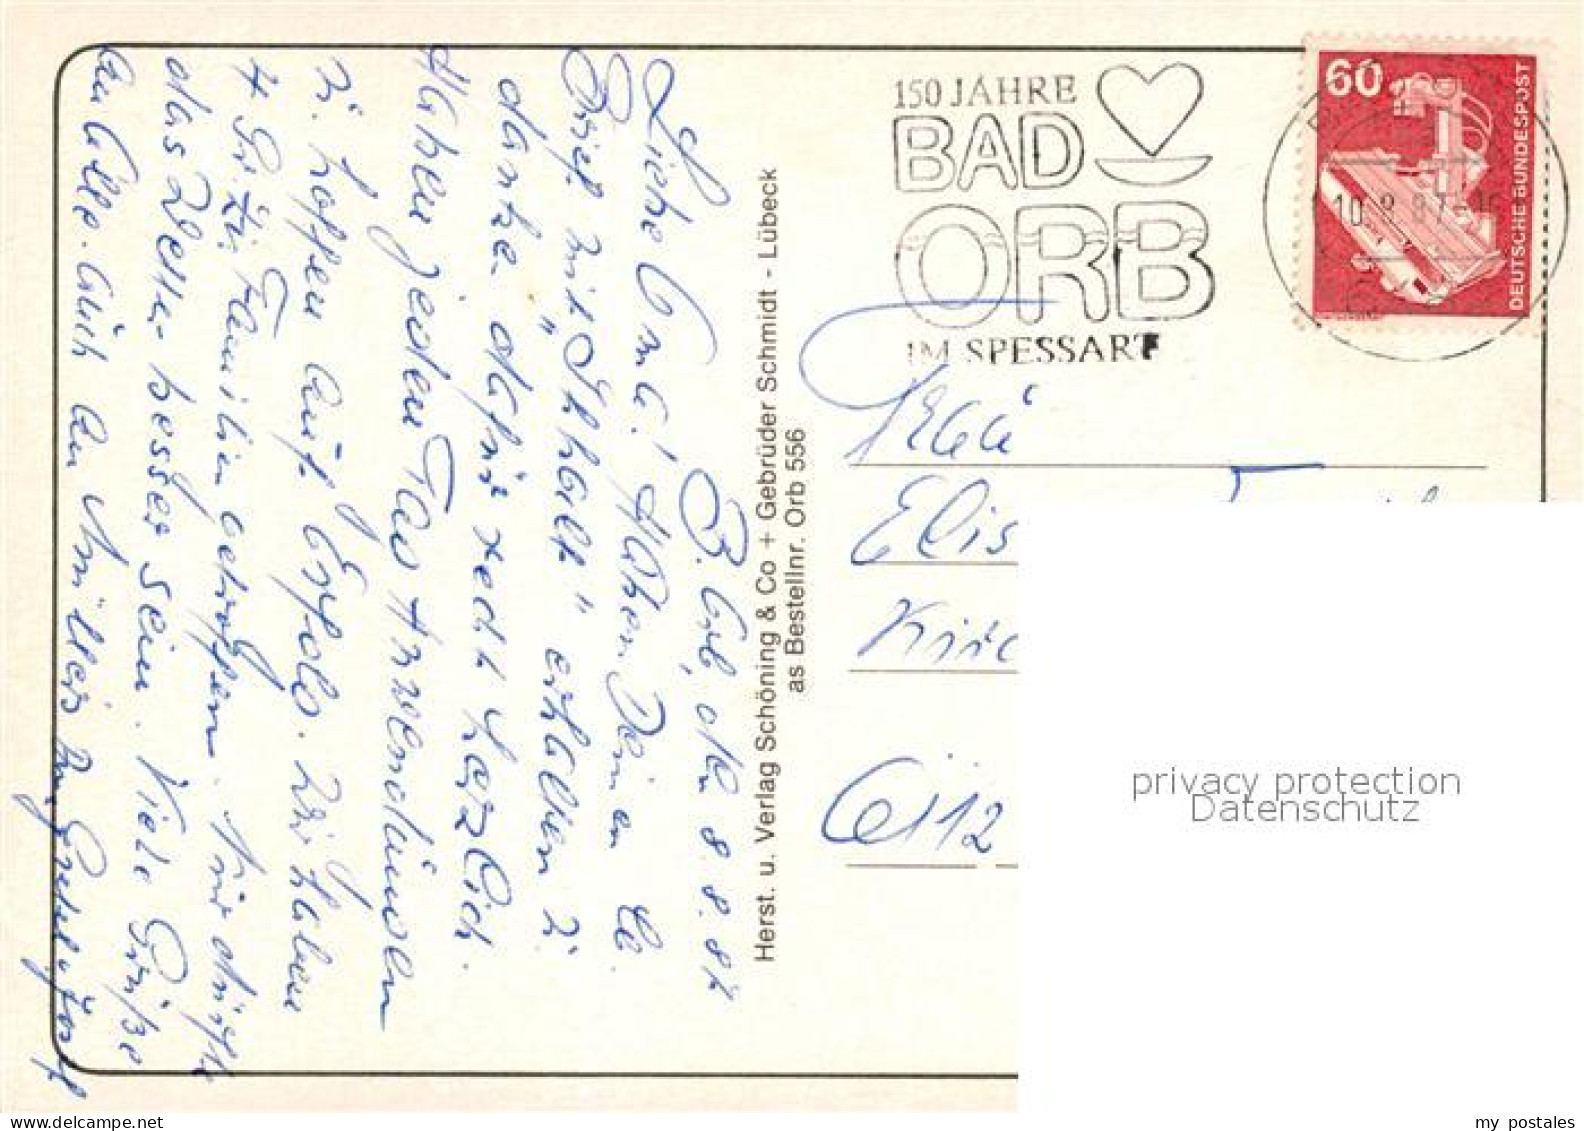 B. Orb, den 8.8.87
Liebe Erna! Haben Deinen lb.
Brief mit "Inhalt" erhalten u.
danke dafür recht herzlich.
Haben jeden Tag Anwendungen
u. hoffen auf Erfolg. Wir haben
4 Familien getroffen. Nur dürfte
das Wetter besser sein. Viele Grüße
an Alle. Auch an Müllers
Herst. u. Verlag Schöning & Co + Gebrüder Schmidt - Lübeck
as Bestellnr. Orb 556
150 JAHRE
BAD
ORB
IM SPESSART
10.8.87-16
60
DEUTSCHE BUNDESPOST
Frau
Elis
Kirc
6112
privacy protection
Datenschutz
my postales